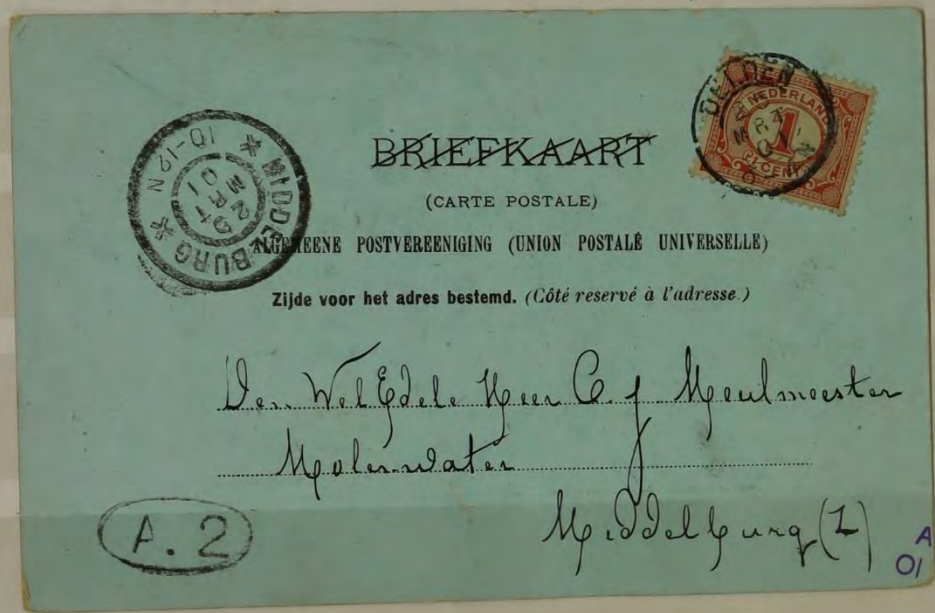 DELDEN
MRT
NEDERLAND
1
CENT
MIDDELBURG
10-12 N
29
MRT
01
BRIEFKAART
(CARTE POSTALE)
ALGEMEENE POSTVEREENIGING (UNION POSTALE UNIVERSELLE)
Zijde voor het adres bestemd. (Côté reservé à l'adresse.)
Den WelEdele Heer C. J Meulmeester
Molenwater
Middelburg (Z)
A. 2
A
01